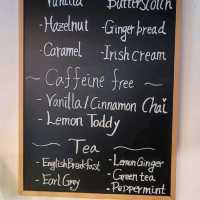 Vanilla Butterscotch
-Hazelnut -Gingerbread
-Caramel -Irish Cream
~ Caffeine free ~
-Vanilla/Cinnamon Chai
-Lemon Toddy
~ Tea ~
-English Breakfast -Lemon Ginger
-Earl Grey -Green tea
-Peppermint